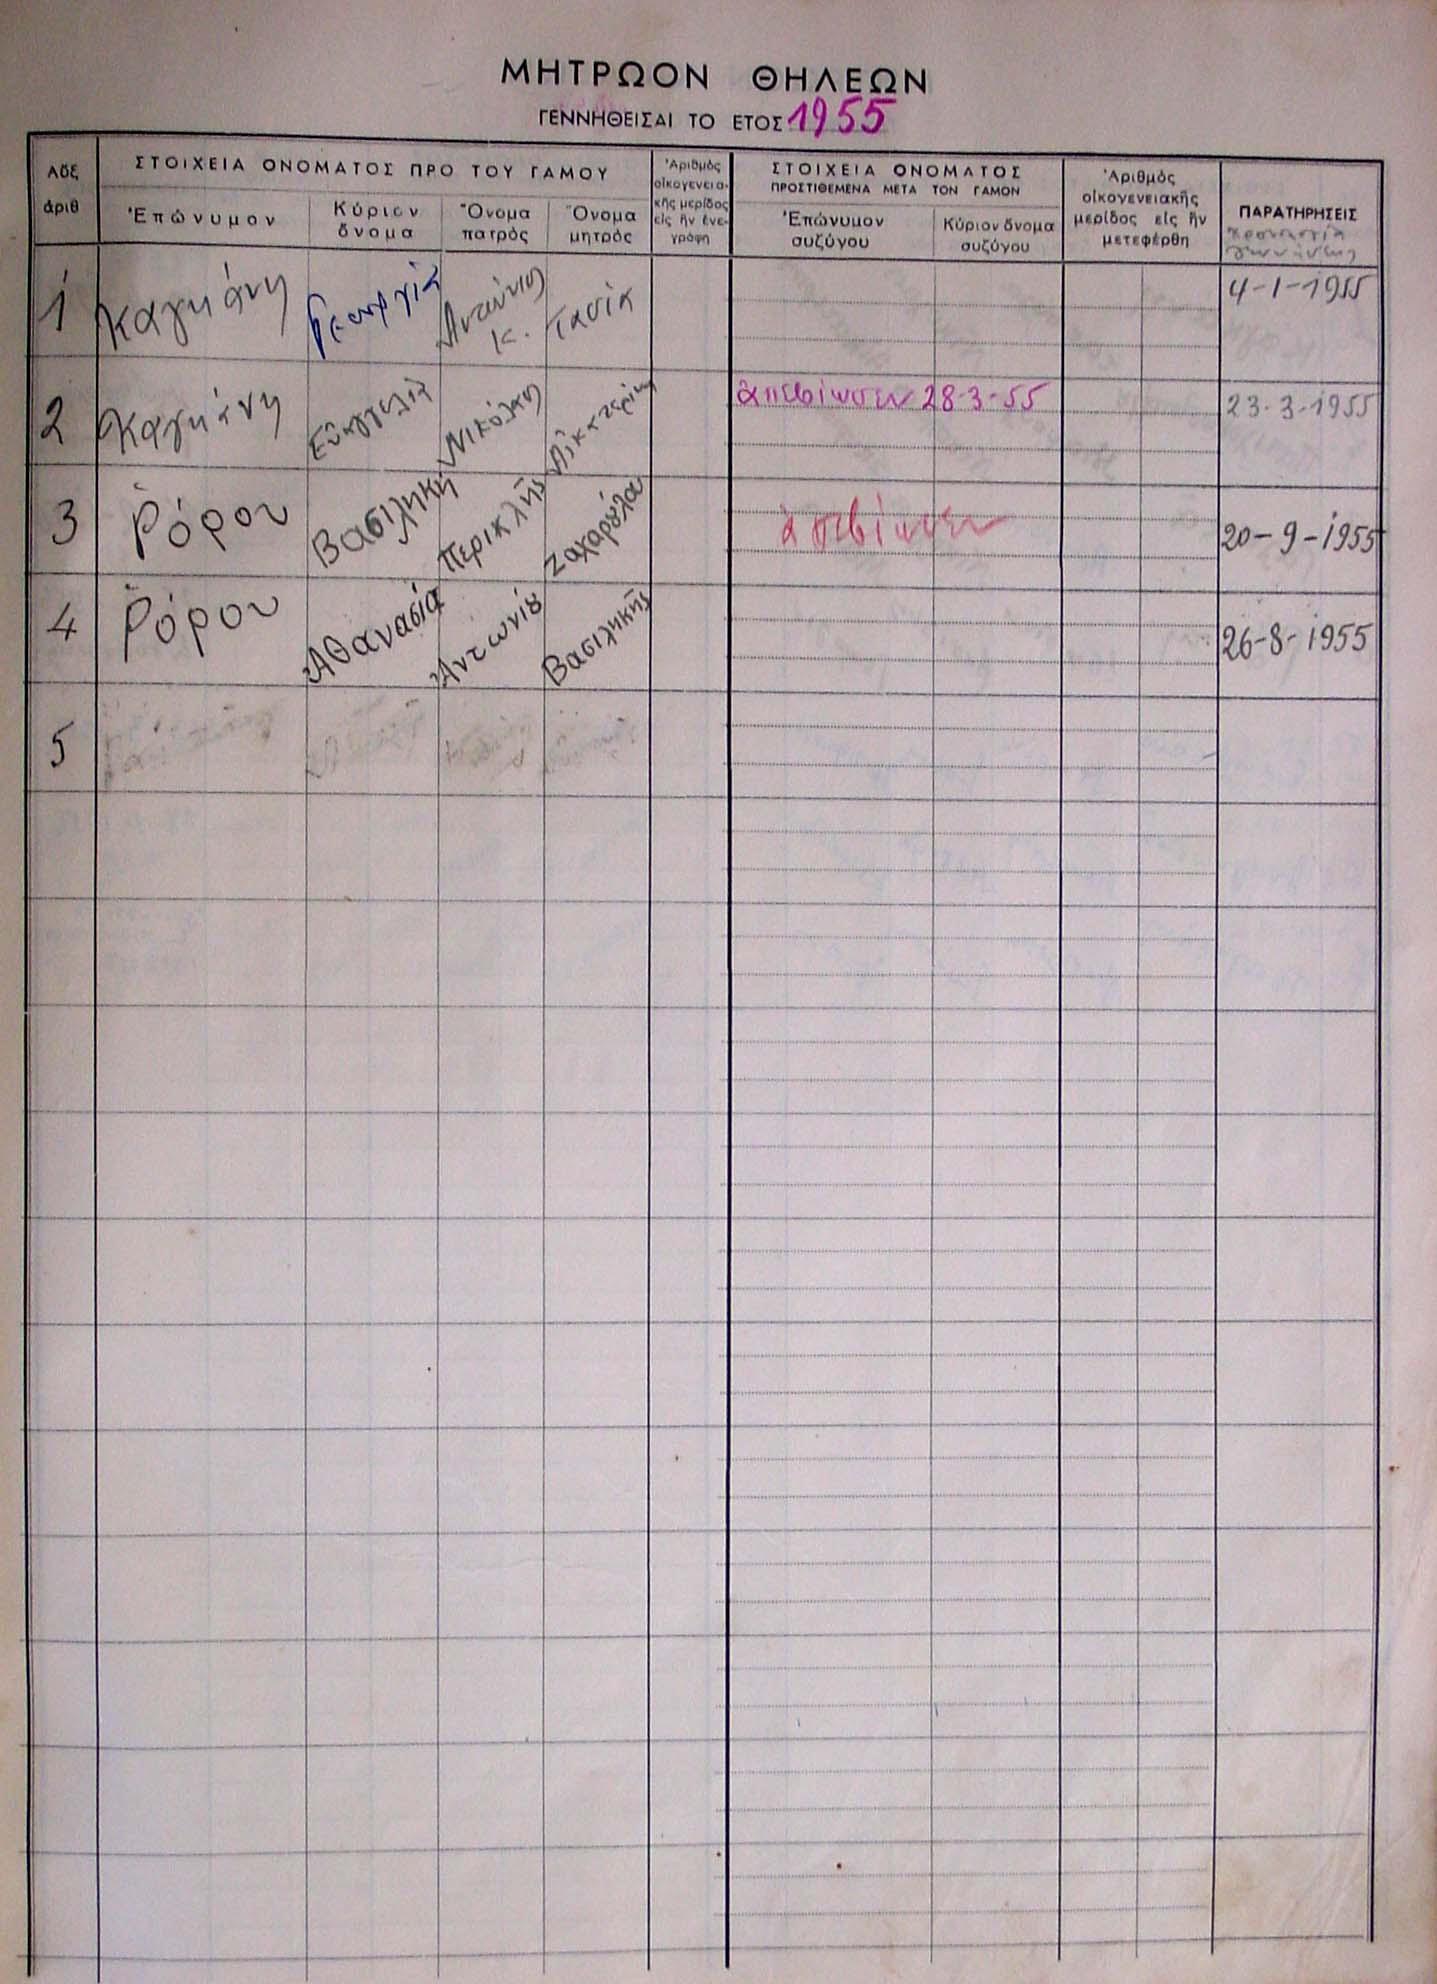 ΜΗΤΡΩΟΝ ΘΗΛΕΩΝ
ΓΕΝΝΗΘΕΙΣΑΙ ΤΟ ΕΤΟΣ 1955
Αὔξ
ἀριθ
ΣΤΟΙΧΕΙΑ ΟΝΟΜΑΤΟΣ ΠΡΟ ΤΟΥ ΓΑΜΟΥ
Ἐπώνυμον
Κύριον
ὄνομα
Ὄνομα
πατρὸς
Ὄνομα
μητρὸς
Ἀριθμὸς
οἰκογενεια-
κῆς μερίδος
εἰς ἣν ἐνε-
γράφη
ΣΤΟΙΧΕΙΑ ΟΝΟΜΑΤΟΣ
ΠΡΟΣΤΙΘΕΜΕΝΑ ΜΕΤΑ ΤΟΝ ΓΑΜΟΝ
Ἐπώνυμον
συζύγου
Κύριον ὄνομα
συζύγου
Ἀριθμὸς
οἰκογενειακῆς
μερίδος εἰς ἣν
μετεφέρθη
ΠΑΡΑΤΗΡΗΣΕΙΣ
1 Καγκάνη Γεωργία Ἀντώνιος Κ. Τασία 4-1-1955
2 Καγκάνη Εὐαγγελία Νικόλαος Αἰκατερίνη ἀπεβίωσεν 28-3-55 23-3-1955
3 Ρόρου Βασιλική Περικλῆς Ζαχαρούλα ἀπεβίωσεν 20-9-1955
4 Ρόρου Ἀθανασία Ἀντωνίου Βασιλικῆς 26-8-1955
5